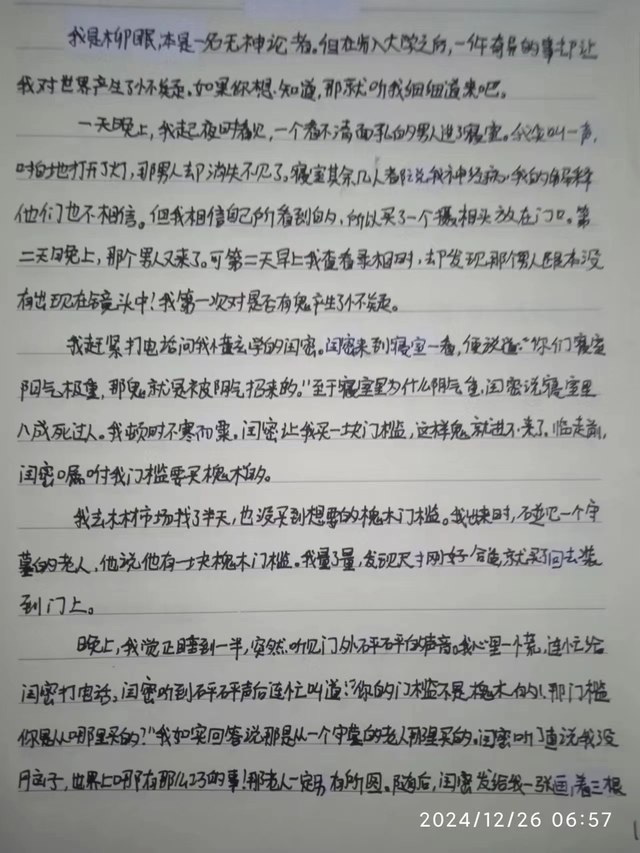 我是柳眠，本是一名无神论者。但在步入大学之后，一件奇异的事却让
我对世界产生了怀疑。如果你想知道，那就听我细细道来吧。
一天晚上，我起夜时看见，一个看不清面孔的男人进了寝室。我大叫一声，
啪地打开了灯，那男人却消失不见了。寝室其余几人都说我神经病，我的解释
他们也不相信。但我相信自己所看到的，所以买了一个摄相头放在门口。第
二天晚上，那个男人又来了。可第二天早上我查看录相时，却发现那个男人跟本没
有出现在镜头中！我第一次对是否有鬼产生了怀疑。
我赶紧打电话问我懂玄学的闺密。闺密来到寝室一看，便说道："你们寝室
阴气极重，那鬼就是被阴气招来的。"至于寝室里为什么阴气重，闺密说寝室里
八成死过人。我顿时不寒而栗。闺密让我买一块门槛，这样鬼就进不来了。临走前，
闺密嘱咐我门槛要买槐木的。
我去木材市场找了半天，也没买到想要的槐木门槛。我出来时，碰见一个守
墓的老人，他说他有一块槐木门槛。我量了量，发现尺寸刚好合适，就买了回去装
到门上。
晚上，我觉正睡到一半，突然听见门外砰砰的声音。我心里一慌，连忙给
闺密打电话，闺密听到砰砰声后连忙叫道："你的门槛不是槐木的！那门槛
你是从哪里买的？"我如实回答说那是从一个守墓的老人那里买的。闺密听了直说我没
脑子，世界上哪有那么巧的事！那老人一定另有所图。随后，闺密发给我一张画，着三根
2024/12/26 06:57